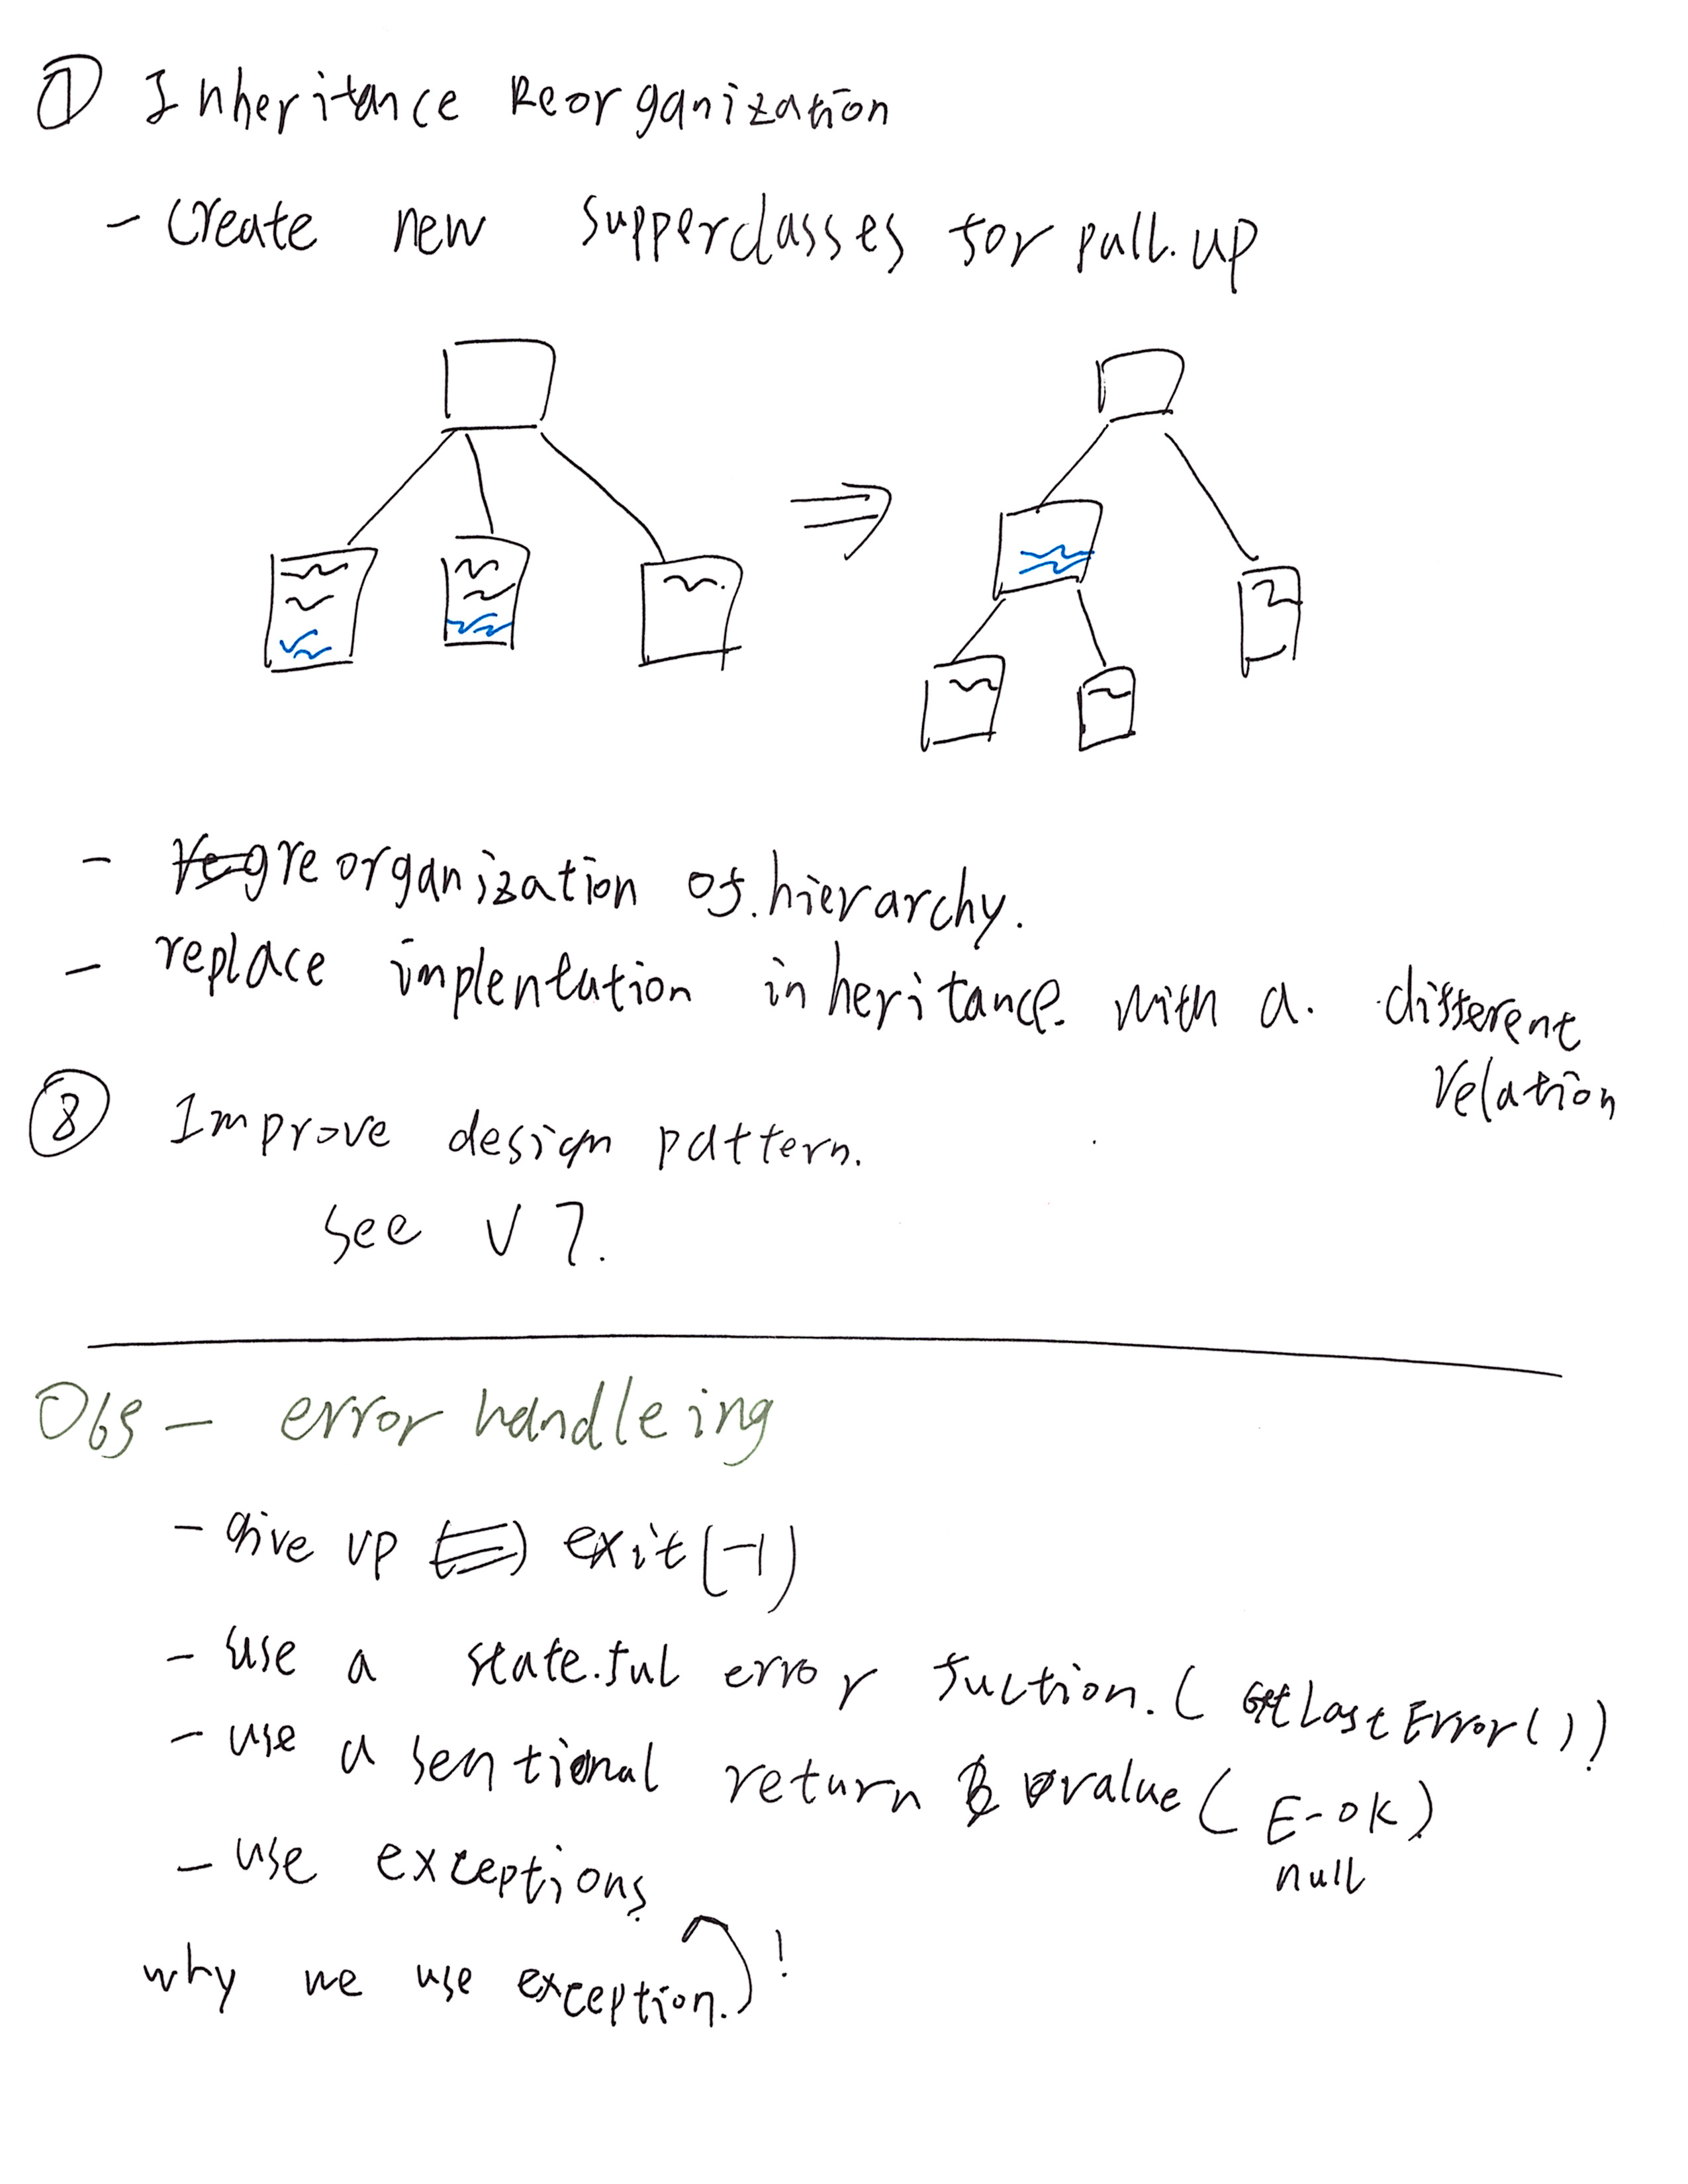 ⑦ Inheritance Reorganization
- Create new supperclasses for pull.up
- reorganization of.hierarchy.
- replace implentation inheritance. with a. different
relation
⑧ Improve design pattern.
see V7.
Obs - error handleing
- give up <=> exit(-1)
- use a state.ful error fuction. (GetLastError())
- use a sentional return value (E-OK)
null
- use exceptions
why we use exception.)!